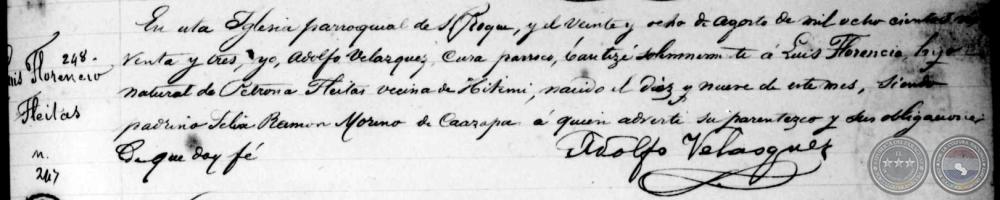 En esta Iglesia parroquial de S. Roque, y el veinte y ocho de Agosto de mil ocho cientos no
venta y tres, yo, Adolfo Velazquez, Cura parroco, bautizé solemnemte á Luis Florencio, hijo
natural de Petrona Fleitas vecina de Hitimi, nacido el diez y nueve de este mes, siendo
padrino Felix Ramon Moreno de Caazapa á quien advertí su parentezco y sus obligaciones
De que doy fé
Adolfo Velasquez
248.
Luis Florencio
Fleitas
n.
247